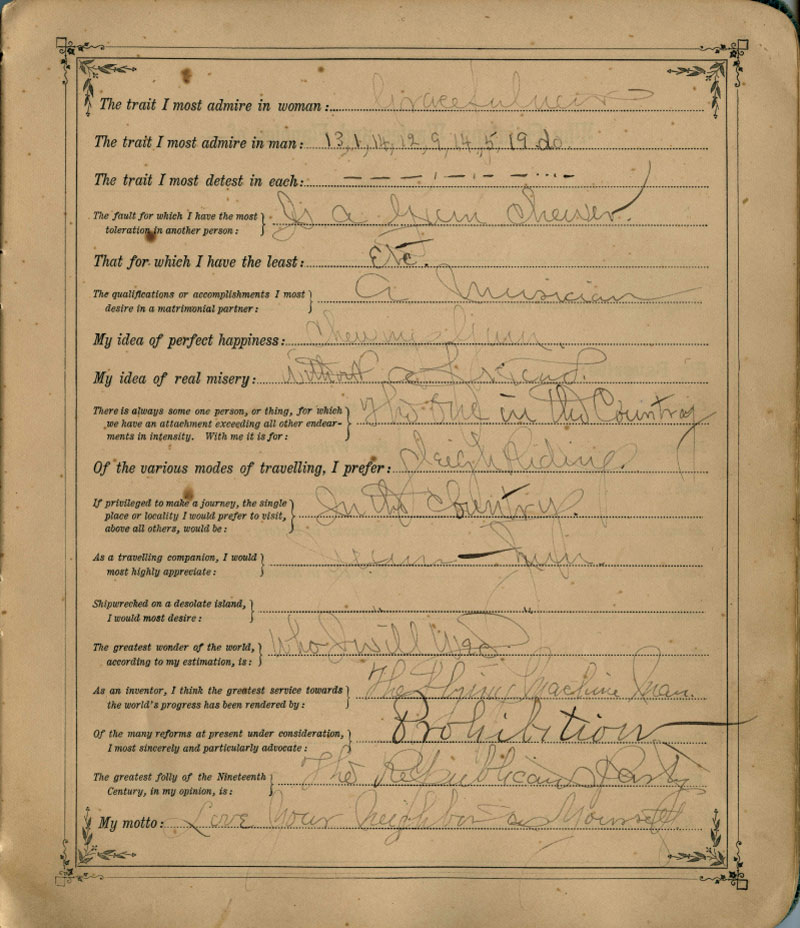 The trait I most admire in woman: Gracefulness
The trait I most admire in man: 13, 1, 14, 12, 9, 14, 5, 19 do
The trait I most detest in each:
The fault for which I have the most
toleration in another person: Is a Gum Chewer.
That for which I have the least: Etc.
The qualifications or accomplishments I most
desire in a matrimonial partner: A Musician
My idea of perfect happiness: Chewing Gum.
My idea of real misery: Without a Friend.
There is always some one person, or thing, for which
we have an attachment exceeding all other endear-
ments in intensity. With me it is for: The One in the Country
Of the various modes of travelling, I prefer: Sleigh Riding.
If privileged to make a journey, the single
place or locality I would prefer to visit,
above all others, would be: In the Country.
As a travelling companion, I would
most highly appreciate:
Shipwrecked on a desolate island,
I would most desire: " "
The greatest wonder of the world,
according to my estimation, is: Who I will Wed
As an inventor, I think the greatest service towards
the world's progress has been rendered by: The Flying Machine Man.
Of the many reforms at present under consideration,
I most sincerely and particularly advocate: Prohibition
The greatest folly of the Nineteenth
Century, in my opinion, is: The Republican Party
My motto: Love Your Neighbor as Yourself.